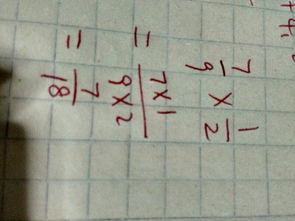 +4.
7/9 × 1/2
= 7×1/9×2
= 7/18